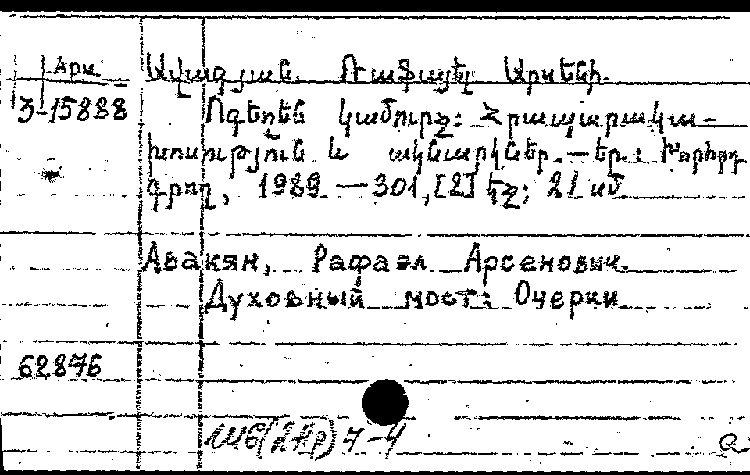 Арм
3-15888
Ավագյան Ռաֆայել Արսենի.
Ոգեղեն կամուրջ: Հրապարակա-
խոսություն և ակնարկներ. — Եր.: Խորհրդ.
գրող, 1989 — 301, [2] էջ; 21 սմ
Авакян, Рафаэл Арсенович.
Духовный мост: Очерки
62876